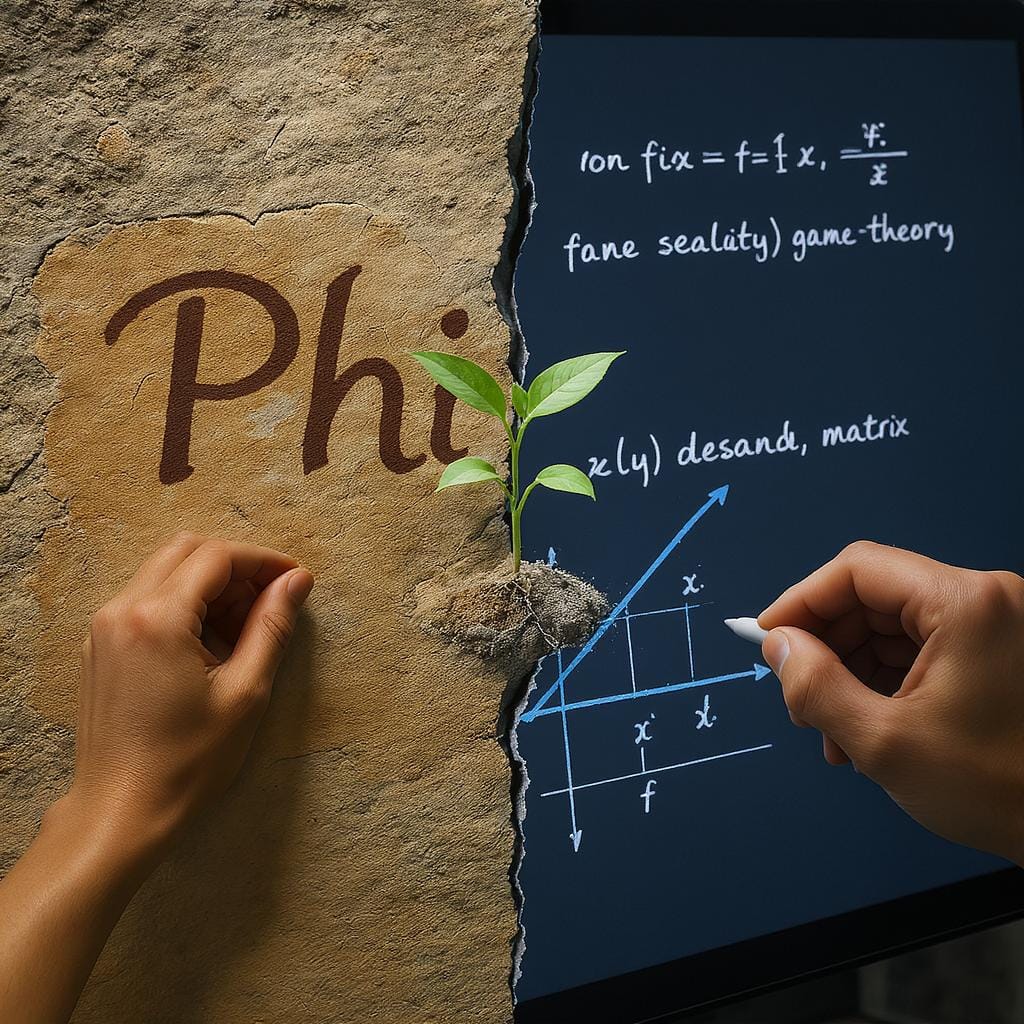 Phi
ion fix = f=
fane sealiity) game-theory
x(y) desande, matrix
x.
x
f